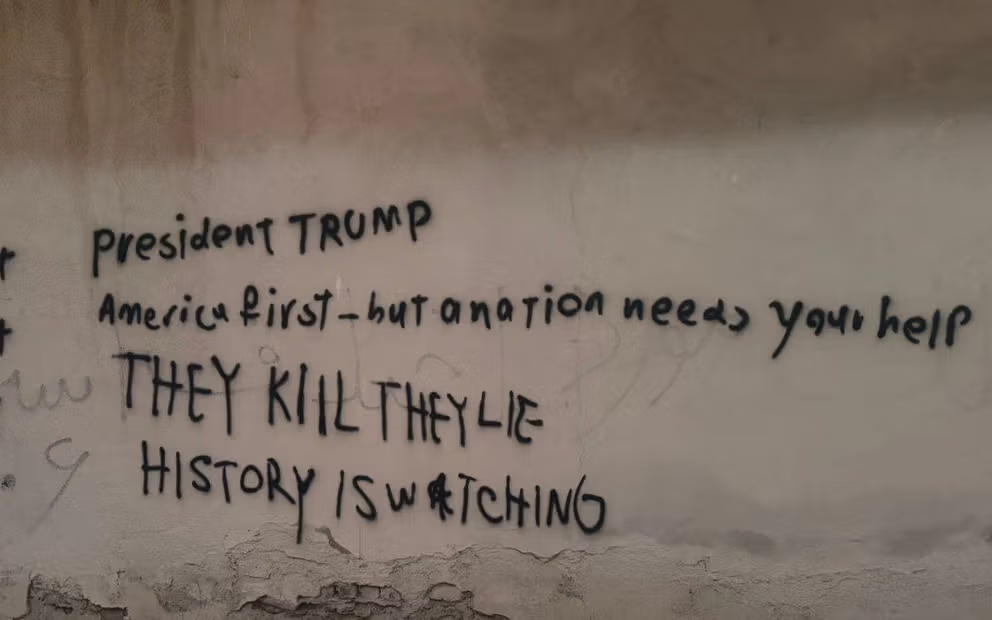 president TRUMP
America first - but a nation needs your help
THEY KILL THEY LIE
HISTORY IS WATCHING